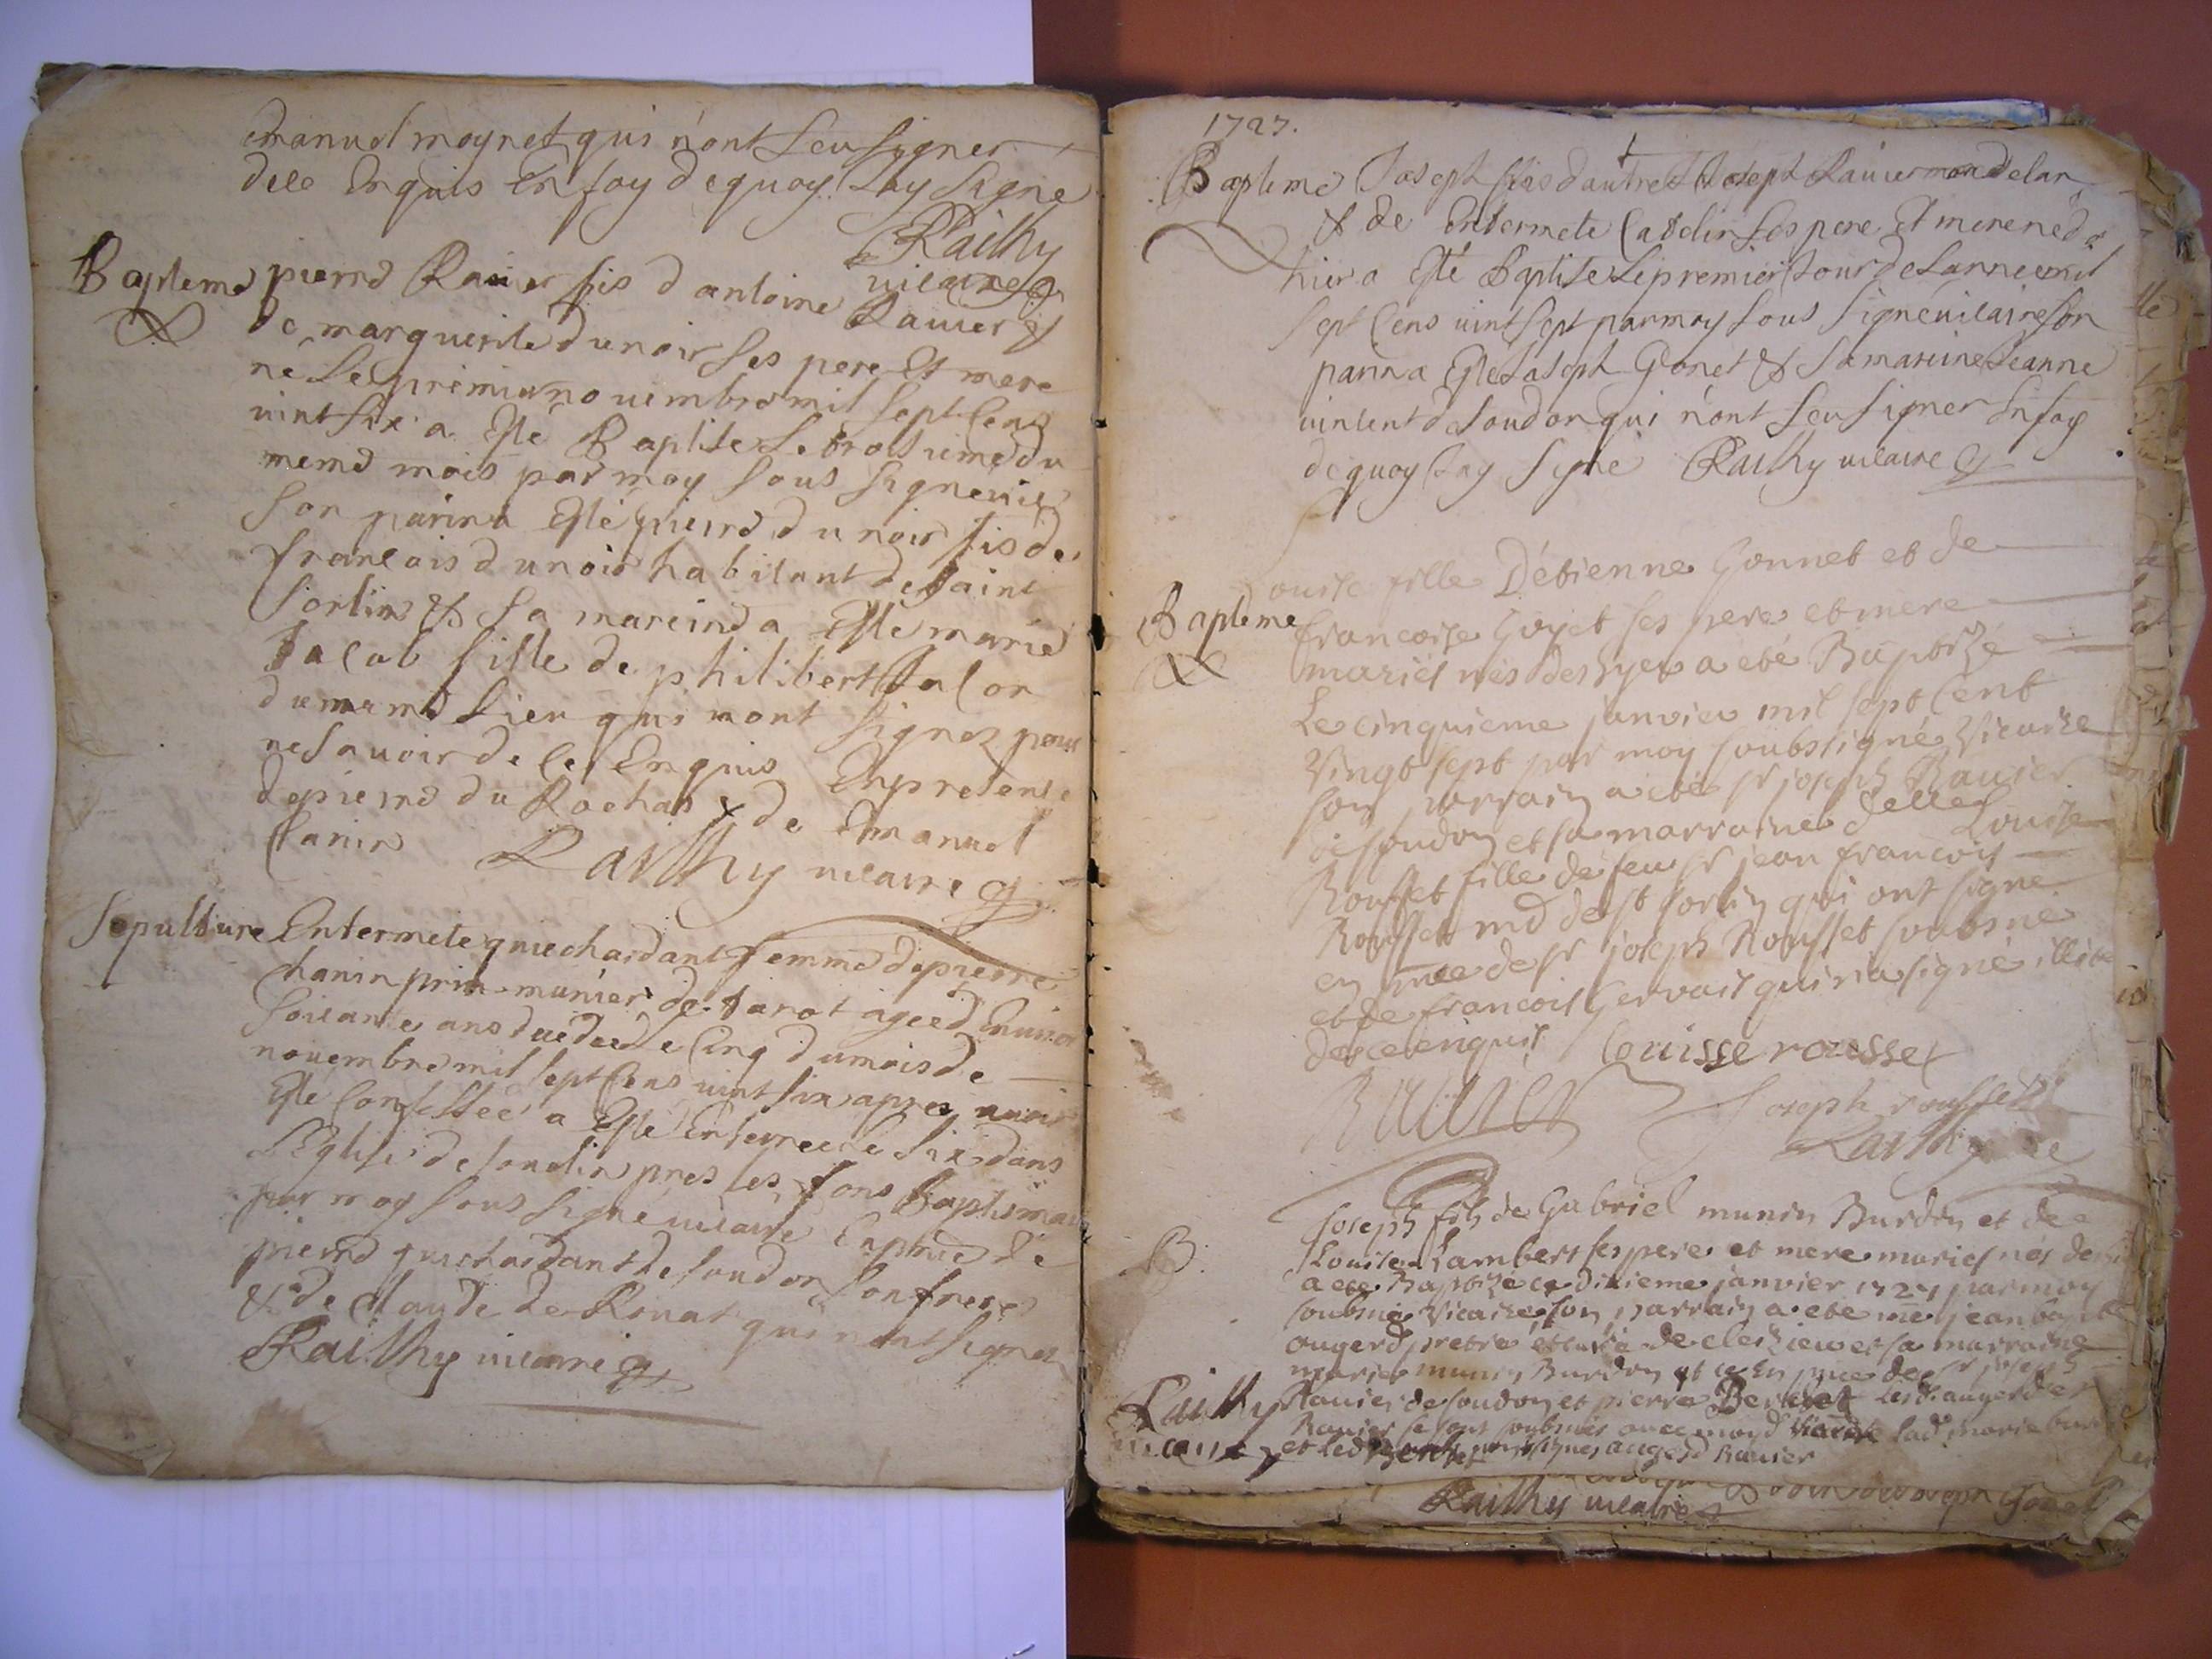 Emanuel moynet qui n'ont seu signer
dece Enquis En foy dequoy Jay signé
Railhy
vicaire
Bapteme pierre Ravier fis d antoine Ravier &
de marguerite dunoir ses pere Et mere
né Le premier novembre mil sept Cens
vint six a Esté Baptise Le troisieme du
meme mois par moy sous signé vic
son parin a Esté pierre dunoir fis de
francois dunoir habitant de saint
sorlin & sa mareine a Esté marie
Jacob fille de philibert Jacob
du meme Lieu qui nont signez pour
ne savoir de ce Enquis En presence
de pierre du Rochas & de Emanuel
Chanin
Railhy vicaire
Sepulture Entermete guichardant femme de pierre
chanin munier de agee d Environ
soixante ans decedee Le Cinq du mois de
novembre mil sept Cens vint six apres avoir
Esté Confessee a Esté Enterree Le six dans
L'Eglise de soudin pres les fons Baptismaux
par moy sous signé vicaire En pnce de
pierre guichardant de soudon son frere
& de Claude de Rinat qui n'ont signez
Railhy vicaire
1727.
Bapteme Joseph fils d autre Joseph Ravier
& de Entermete Catelin ses pere Et mere né d
hier a Esté Baptise Le premier Jour de Lannee mil
sept Cens vint sept par moy sous signé vicaire son
parin a Esté Joseph Gonet & sa mareine Jeanne
vincent de soudon qui n'ont seu signer En foy
de quoy Jay signé Railhy vicaire
Bapteme
ouise fille D'étienne Gonnet et de
francoise Goyet ses pere et mere
mariés née des hyer a eté Baptizé
Le cinquieme janvier mil sept Cent
Vingt sept par moy soubsigné Vicaire
son parrain a eté sr joseph Ravier
de soudon et sa marraine delle Louise
Rousset fille de feu sr jean francois
Rousset md de st sorlin qui ont signé
en pnce de sr joseph Rousset soubsné
et de francois Gervais qui n'a signé illitere
de ce enquis Louisse rousset
Ravier joseph rousset
Railhy
B.
Joseph fils de Gabriel munin Burdin et de
Louise Lambert ses pere et mere mariés né
a eté Baptizé ce dixieme janvier 1727 par moy
soubsné Vicaire son parrain a eté me jean
ougerd pretre et curé de et sa marraine
marie munin Burdin et ce En pnce de sr joseph
Ravier de soudon et pierre
Ravier se sont soubsnés avec moyd Vicaire lad marie
et led augerd Ravier
Railhy
vicaire
Joseph Gonet
Railhy vicaire